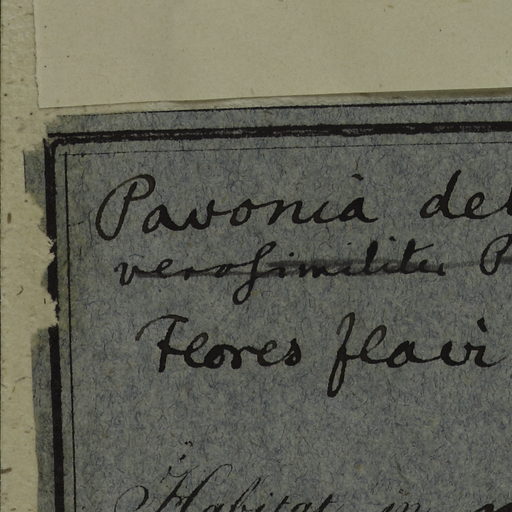 Pavonia del
verosimiliter P
Flores flavi
Habitat in